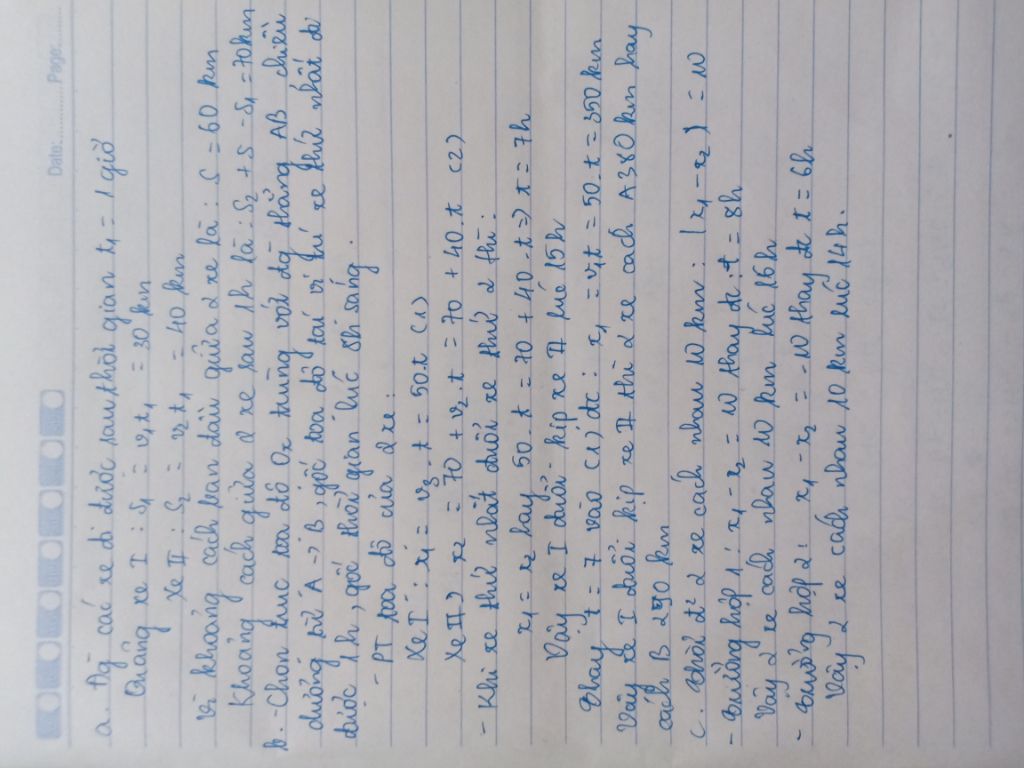 Date: ............ Page: ......
a. Độ các xe đi được sau thời gian t₁ = 1 giờ
Quảng xe I : S₁ = v₁t₁ = 30 km
Xe II : S₂ = v₂t₁ = 40 km
Vì khoảng cách ban đầu giữa 2 xe là : S = 60 km
Khoảng cách giữa 2 xe sau 1h là : S₂ + S - S₁ = 70km
b. - Chọn trục toạ độ Ox trùng với đg thẳng AB chiều
dương từ A -> B, gốc toạ độ tại vị trí xe thứ nhất đi
được 1h, gốc thời gian lúc 8h sáng.
- PT toạ độ của 2 xe:
Xe I : x₁ = v₃. t = 50.t (1)
Xe II, x₂ = 70 + v₂ t = 70 + 40.t (2)
- Khi xe thứ nhất đuổi xe thứ 2 thì:
x₁ = x₂ hay 50.t = 70 + 40.t => t = 7h
Vậy xe I đuổi kịp xe II lúc 15h
Thay t = 7 vào (1) đc : x₁ = v₁t = 50.t = 350km
Vậy xe I đuổi kịp xe II thì 2 xe cách A 380 km hay
cách B 290 km
c. Thời đ² 2 xe cách nhau 10 km : |x₁ - x₂| = 10
- Trường hợp 1 : x₁ - x₂ = 10 thay đc : t = 8h
Vậy 2 xe cách nhau 10 km lúc 16h
- Trường hợp 2 : x₁ - x₂ = -10 thay đc t = 6h
Vậy 2 xe cách nhau 10 km lúc 14h.